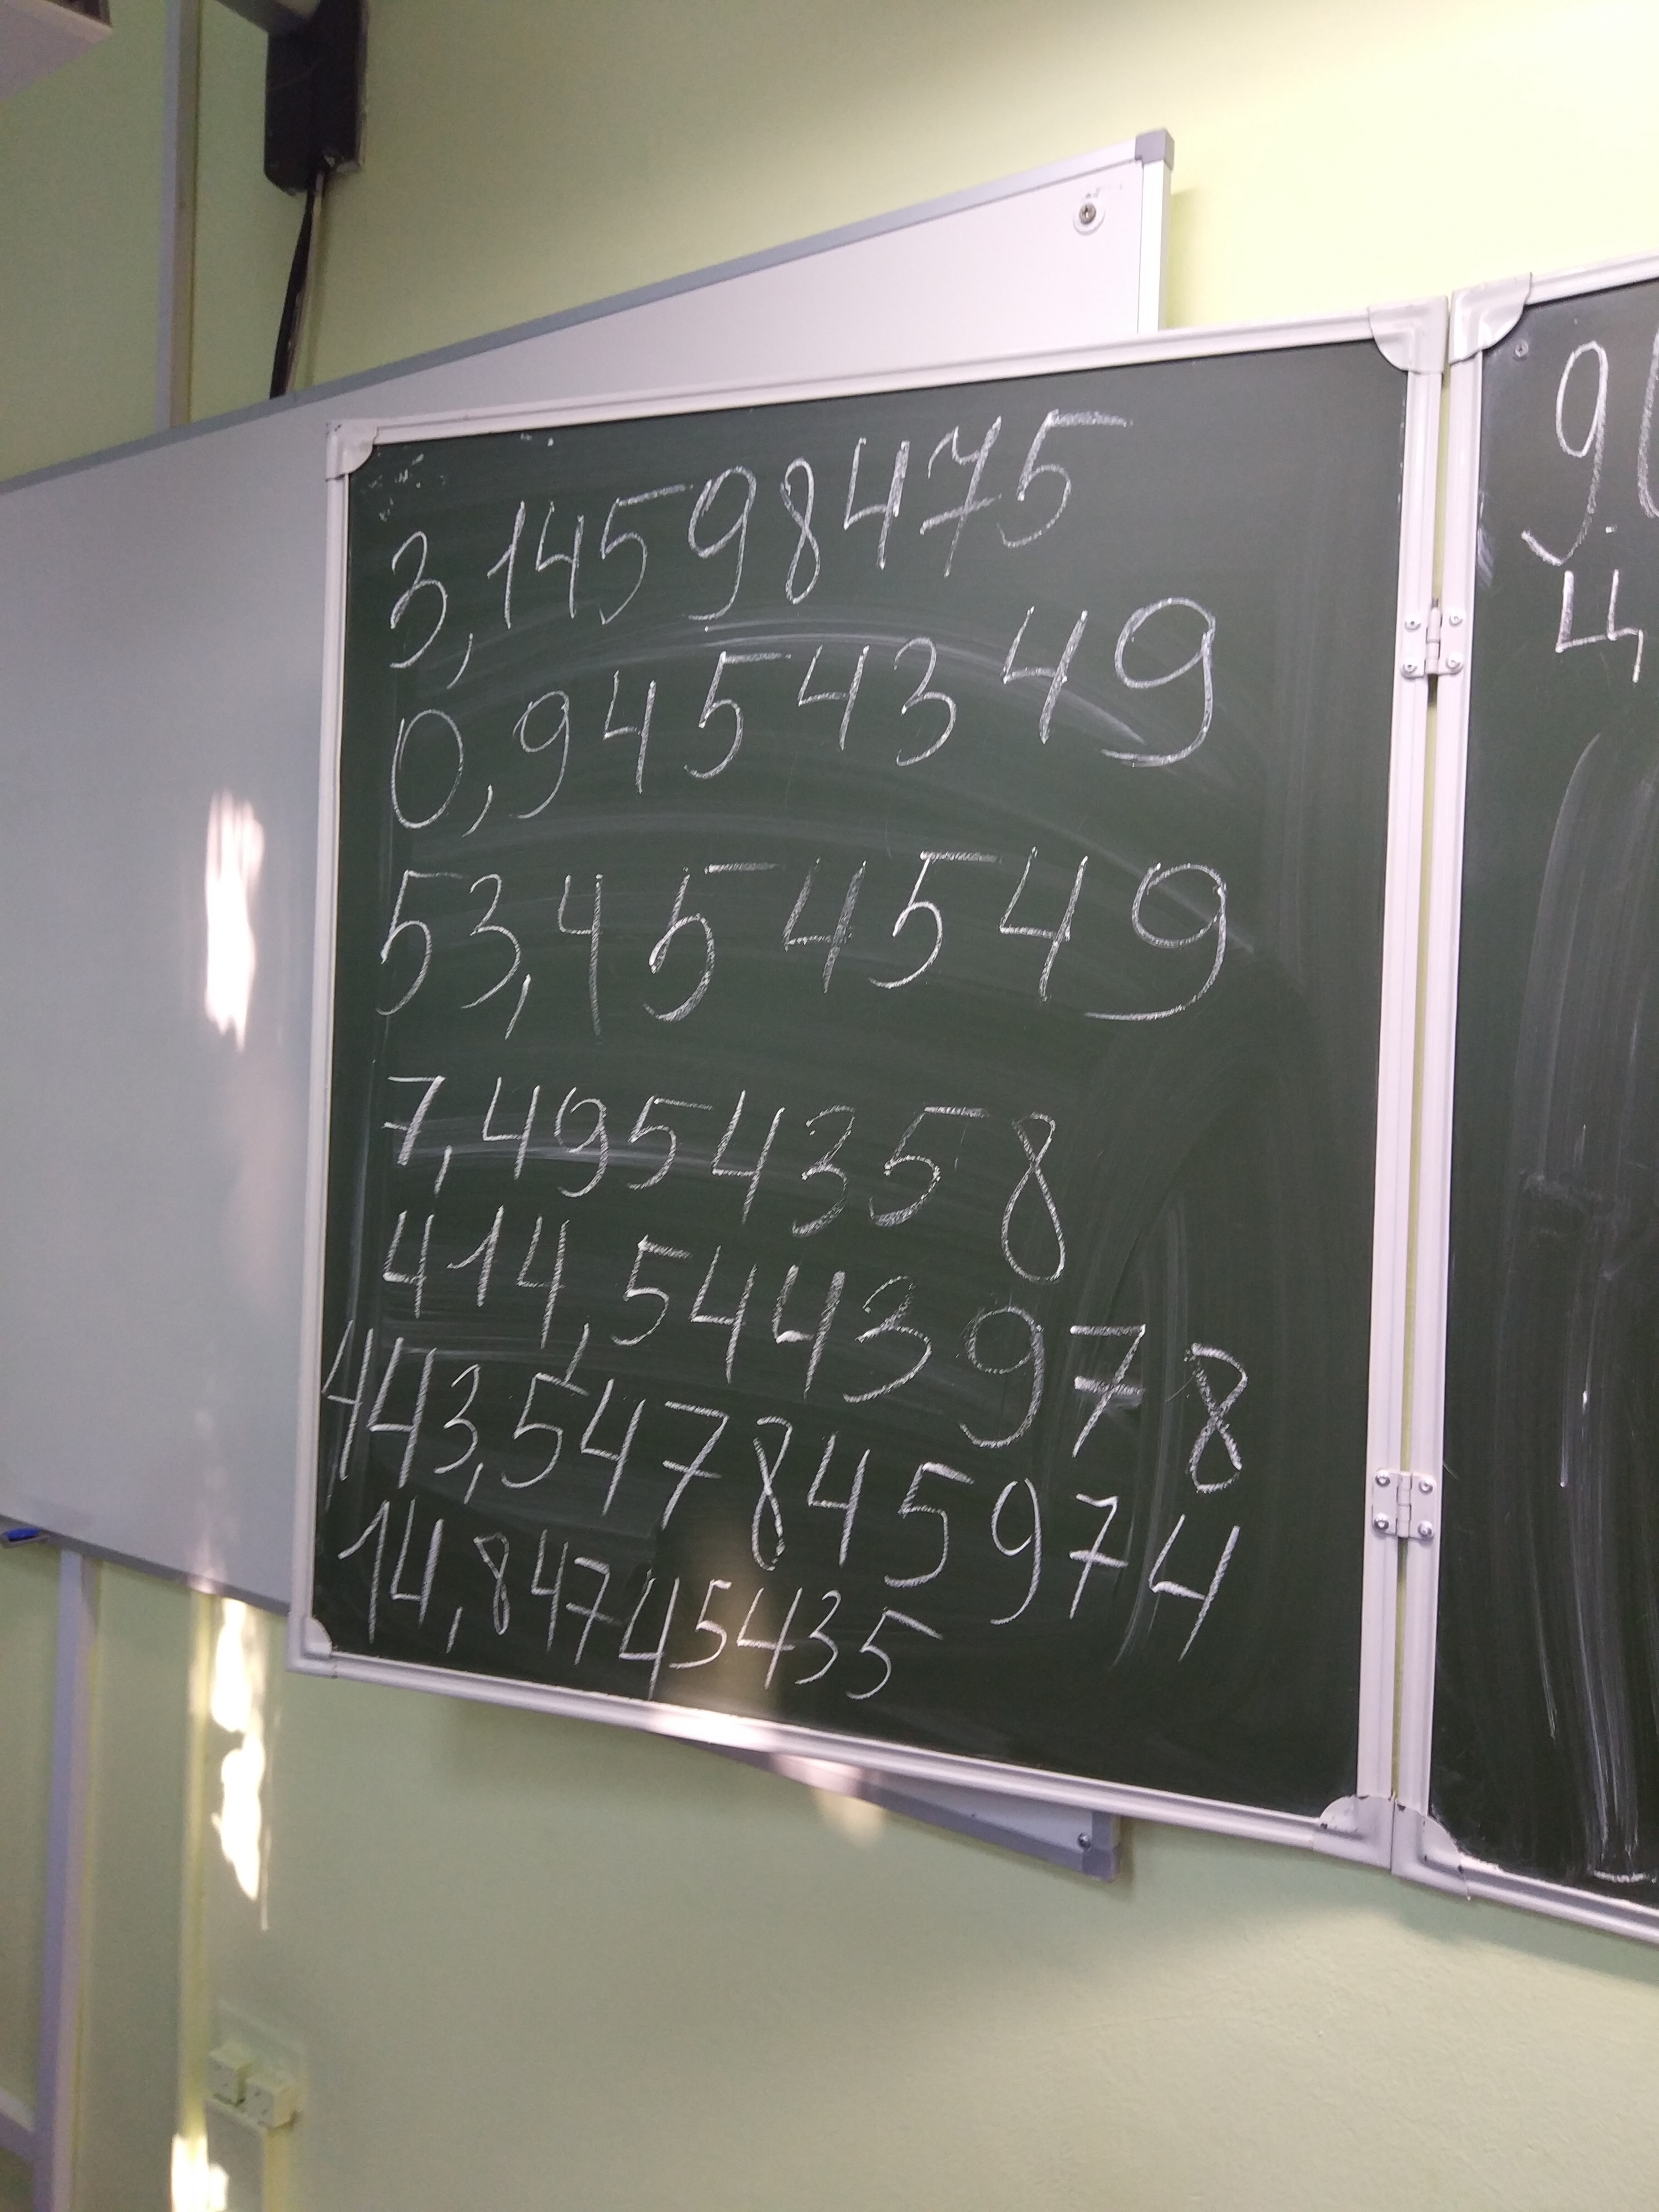 3,14598475
0,9454349
53,454549
7,4954358
414,5443978
443,547845974
14,84745435
9
ц